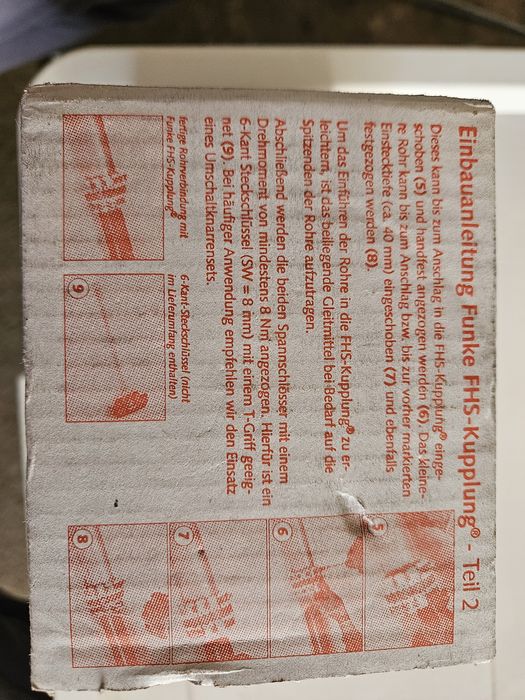 Einbauanleitung Funke FHS-Kupplung® - Teil 2
Dieses kann bis zum Anschlag in die FHS-Kupplung® einge-
schoben (5) und handfest angezogen werden (6). Das kleine-
re Rohr kann bis zum Anschlag bzw. bis zur vorher markierten
Einstecktiefe (ca. 40 mm) eingeschoben (7) und ebenfalls
festgezogen werden (8).
Um das Einführen der Rohre in die FHS-Kupplung® zu er-
leichtern, ist das beiliegende Gleitmittel bei Bedarf auf die
Spitzenden der Rohre aufzutragen.
Abschließend werden die beiden Spannschlösser mit einem
Drehmoment von mindestens 8 Nm angezogen. Hierfür ist ein
6-Kant Steckschlüssel (SW = 8 mm) mit einem T-Griff geeig-
net (9). Bei häufiger Anwendung empfehlen wir den Einsatz
eines Umschaltknarrensets.
fertige Rohrverbindung mit
Funke FHS-Kupplung®
6-Kant-Steckschlüssel (nicht
im Lieferumfang enthalten)
9
5
6
7
8